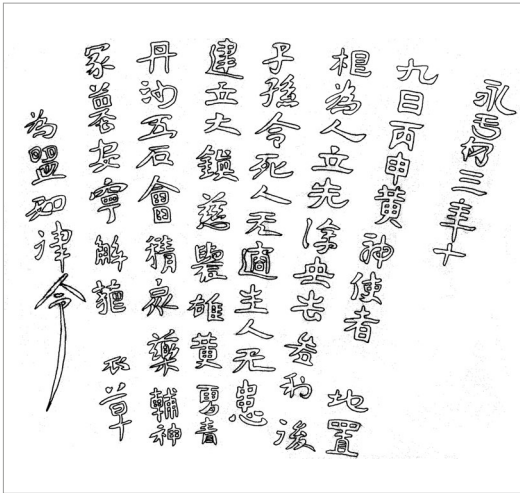 永初三年十
九日丙申黃神使者地置
根為人立先除央去咎利後
子孫令死人无適生人无患
建立大鎮慈礜雄黃曾青
丹沙五石會精眾藥輔神
冢墓安寧解薶不草
為盟如律令